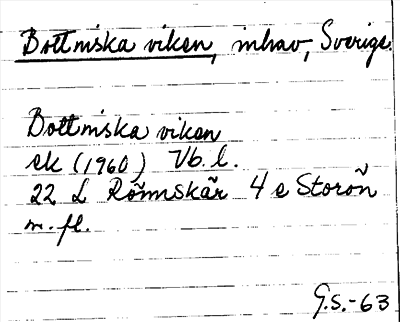 Bottniska viken, inhav, Sverige.
Bottniska viken
ek (1960) Vb. l.
22 L Rönnskär 4 e Storön
m. fl.
G.S.-63